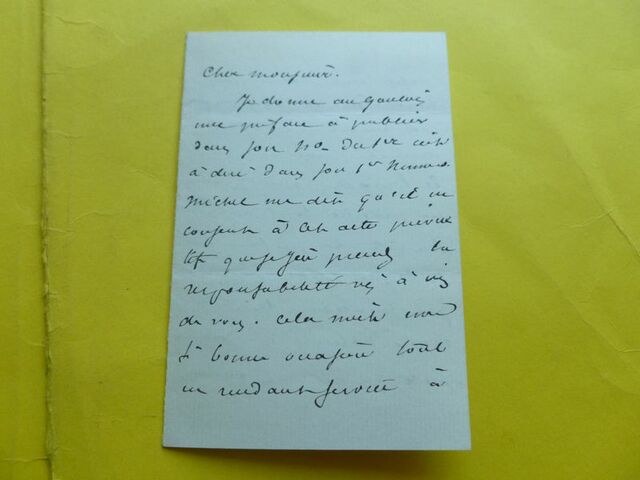 Cher monsieur.
Je donne au Gaulois
une préface à publier
dans son no du 1er c'est
à dire dans son 1er Numero
Michel me dit qu'il ne
consent à cet acte
que si j'en prends la
responsabilité vis à vis
de vous. Cela m'est une
si bonne occasion tout
en rendant service à